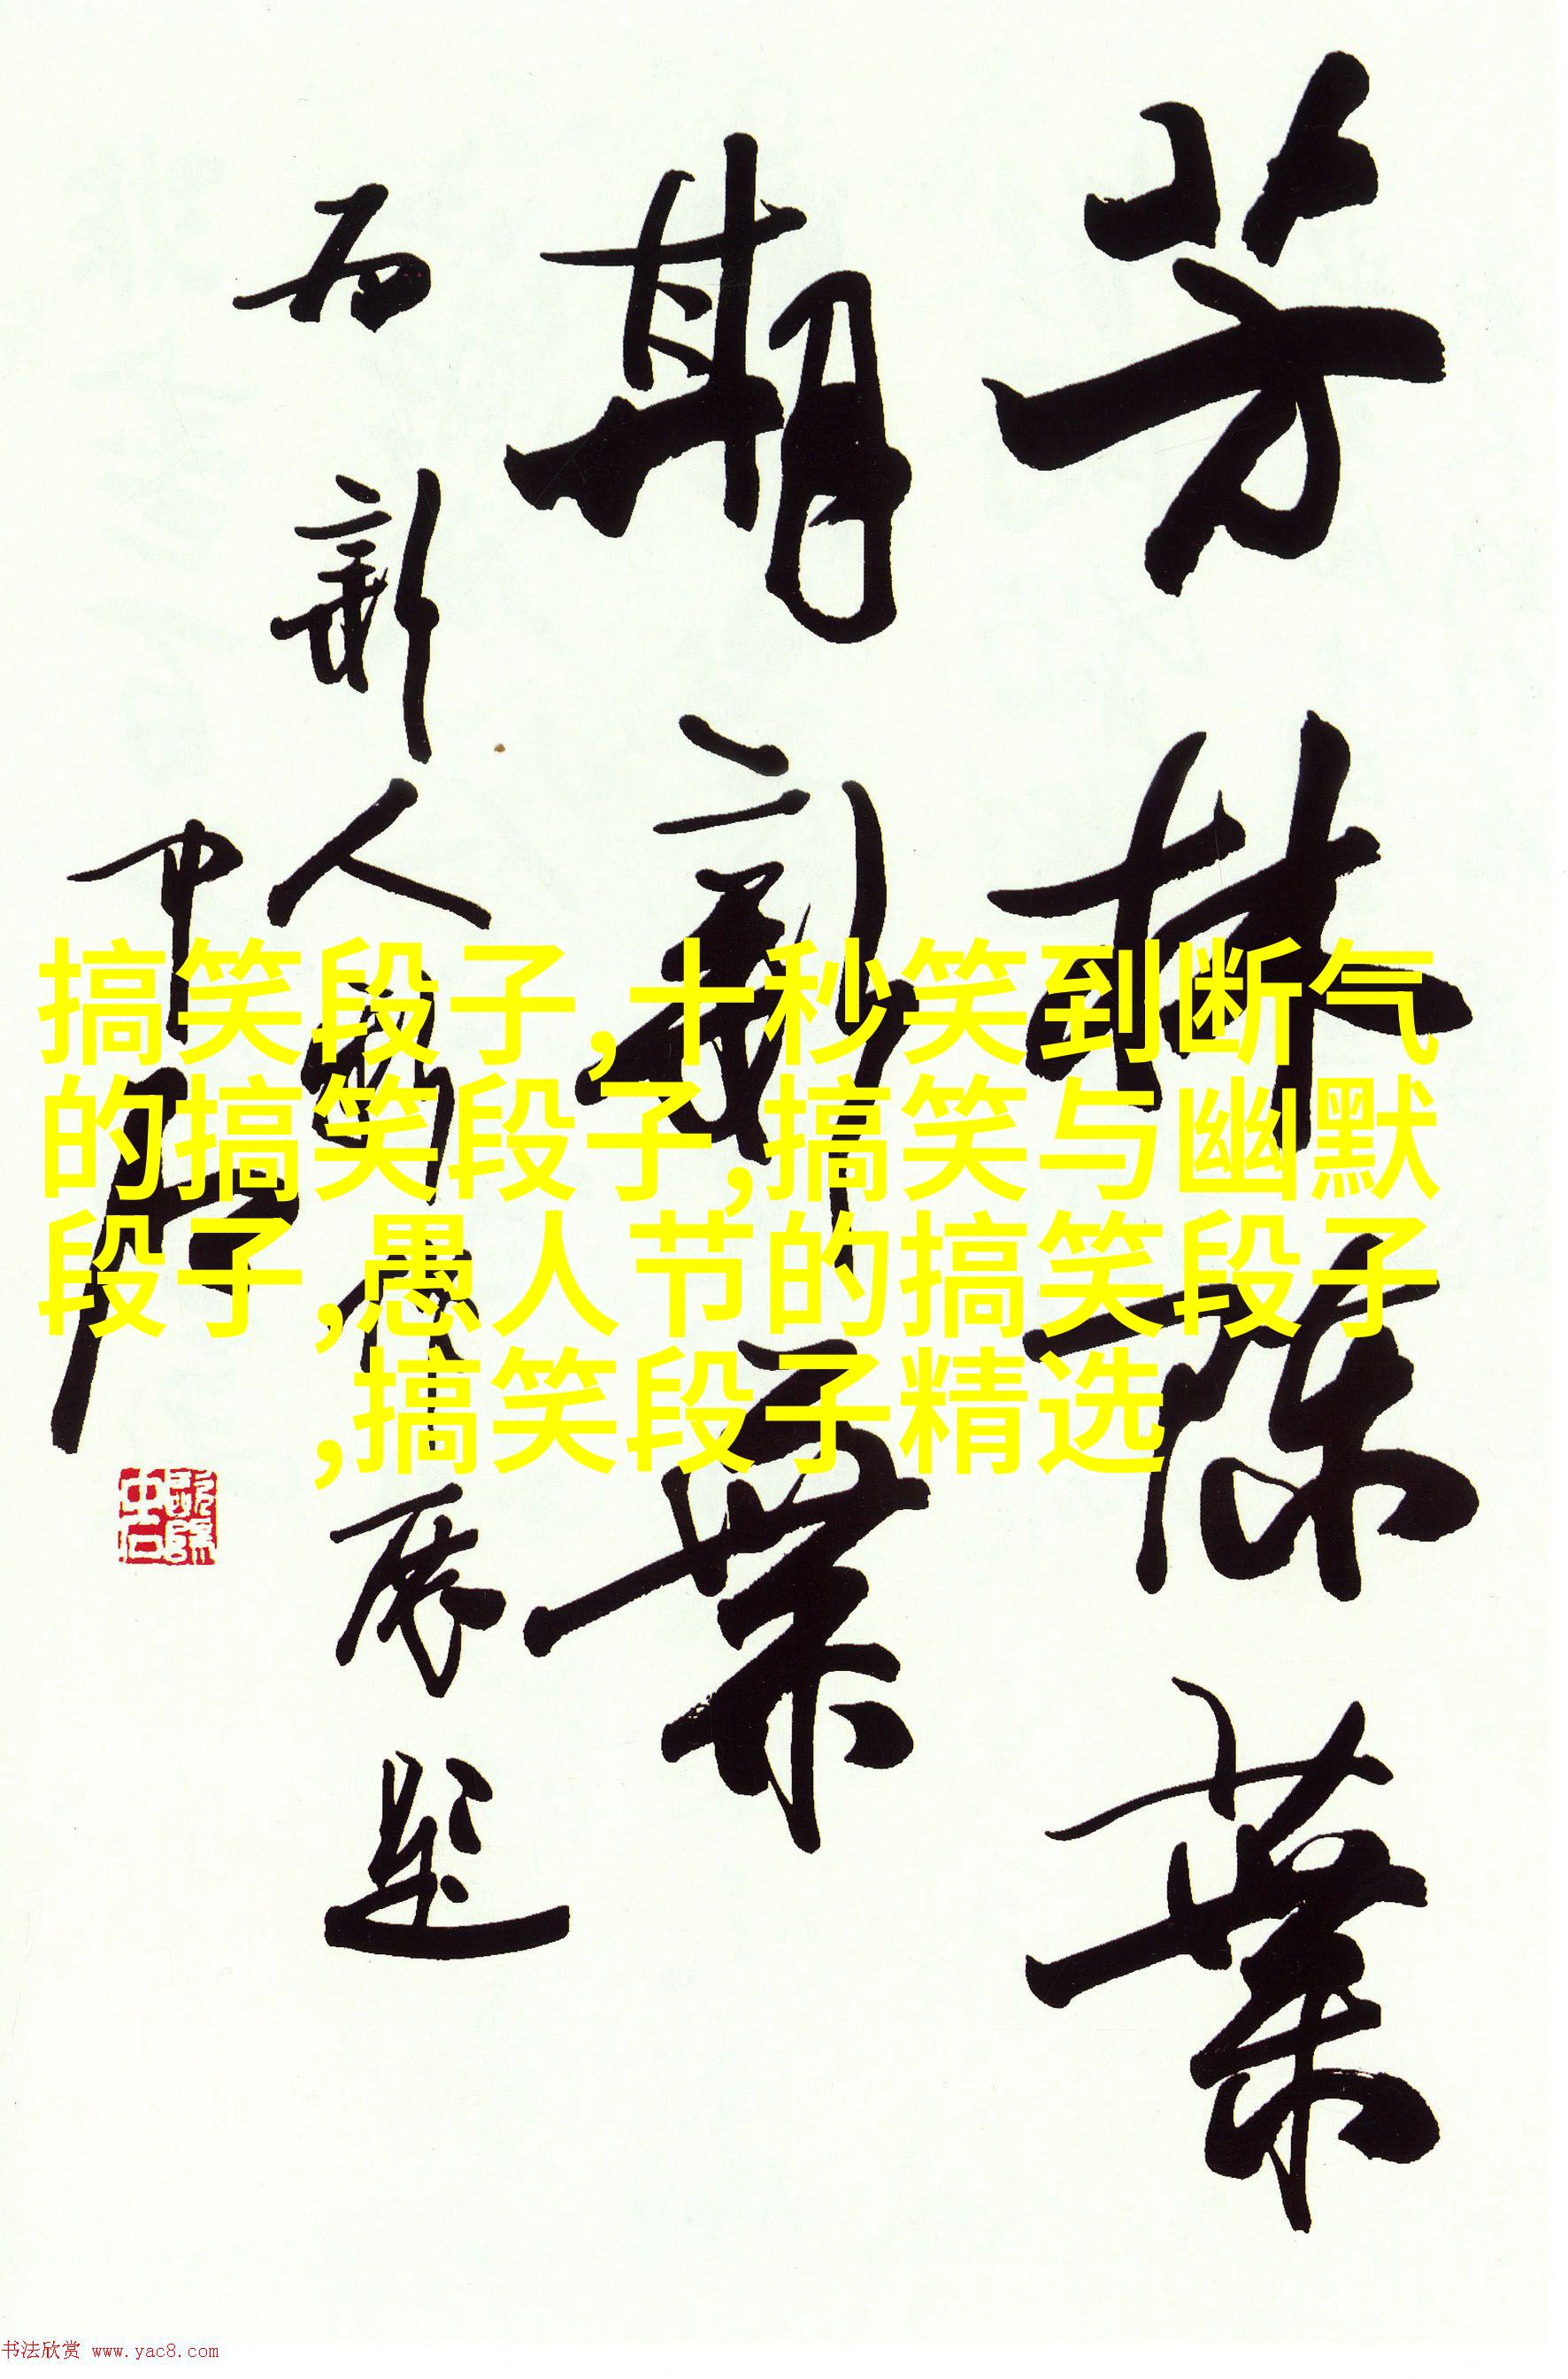 芳林陈葉
期新葉
为新人
展题
中石
搞笑段子,十秒笑到断气
的搞笑段子,搞笑与幽默
段子,愚人节的搞笑段子
,搞笑段子精选
书法欣赏 www.yac8.com